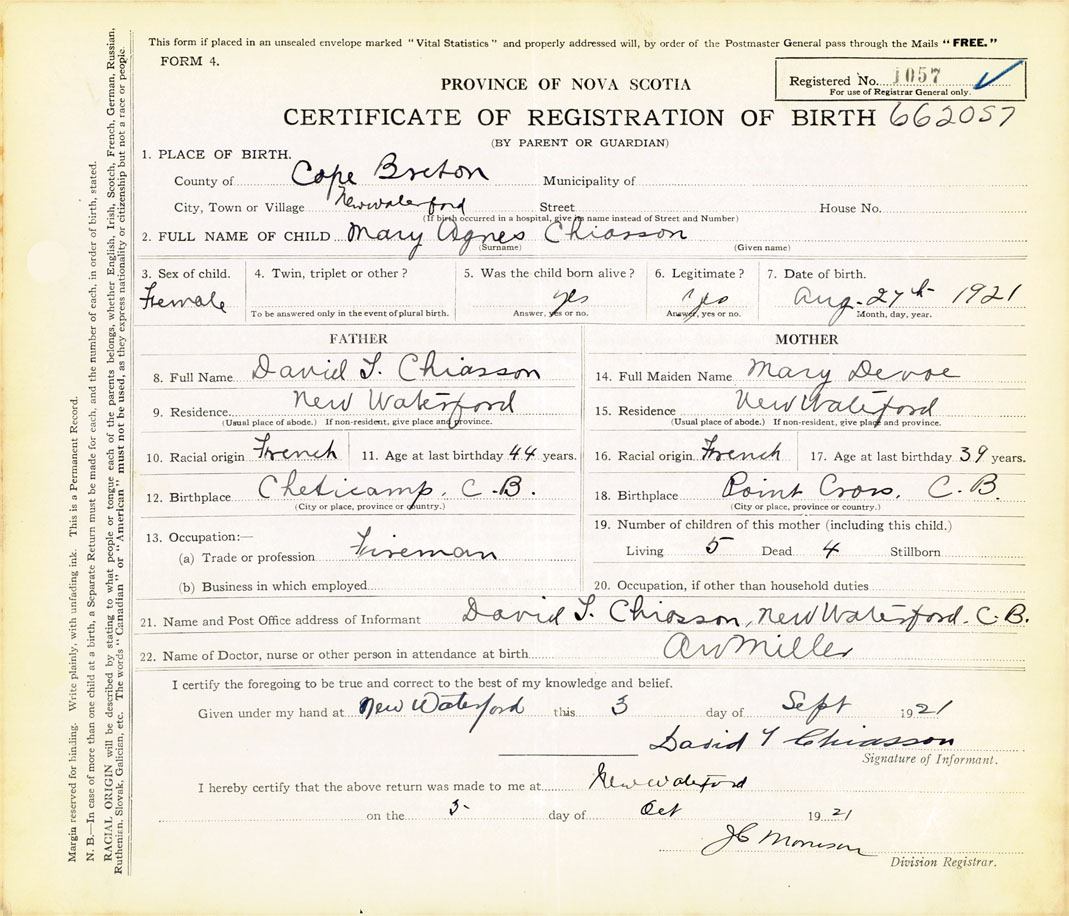 This form if placed in an unsealed envelope marked "Vital Statistics" and properly addressed will, by order of the Postmaster General pass through the Mails "FREE."
FORM 4.
Registered No. 1057
For use of Registrar General only.
PROVINCE OF NOVA SCOTIA
CERTIFICATE OF REGISTRATION OF BIRTH 662057
(BY PARENT OR GUARDIAN)
1. PLACE OF BIRTH.
County of Cape Breton Municipality of
City, Town or Village New Waterford Street House No.
(If birth occurred in a hospital, give its name instead of Street and Number)
2. FULL NAME OF CHILD Mary Agnes Chiasson
(Surname) (Given name)
3. Sex of child. 4. Twin, triplet or other? 5. Was the child born alive? 6. Legitimate? 7. Date of birth.
Female yes Yes Aug. 27th 1921
To be answered only in the event of plural birth. Answer, yes or no. Answer, yes or no. Month, day, year.
FATHER MOTHER
8. Full Name David T. Chiasson 14. Full Maiden Name Mary Devoe
9. Residence New Waterford 15. Residence New Waterford
(Usual place of abode.) If non-resident, give place and province. (Usual place of abode.) If non-resident, give place and province.
10. Racial origin French 11. Age at last birthday 44 years. 16. Racial origin French 17. Age at last birthday 39 years.
12. Birthplace Cheticamp, C.B. 18. Birthplace Point Cross, C.B.
(City or place, province or country.) (City or place, province or country.)
13. Occupation:— 19. Number of children of this mother (including this child.)
(a) Trade or profession Fireman Living 5 Dead 4 Stillborn
(b) Business in which employed 20. Occupation, if other than household duties
21. Name and Post Office address of Informant David T. Chiasson, New Waterford. C.B.
22. Name of Doctor, nurse or other person in attendance at birth A W Miller
I certify the foregoing to be true and correct to the best of my knowledge and belief.
Given under my hand at New Waterford this 3 day of Sept 1921
David T Chiasson
Signature of Informant.
I hereby certify that the above return was made to me at New Waterford
on the 3 day of Oct 1921
JC Morrison
Division Registrar.
Margin reserved for binding. Write plainly, with unfading ink. This is a Permanent Record.
N. B.—In case of more than one child at a birth, a Separate Return must be made for each, and the number of each, in order of birth, stated.
RACIAL ORIGIN will be described by stating to what people or tongue each of the parents belongs, whether English, Irish, Scotch, French, German, Russian,
Ruthenian, Slovak, Galician, etc. The words "Canadian" or "American" must not be used, as they express nationality or citizenship but not a race or people.